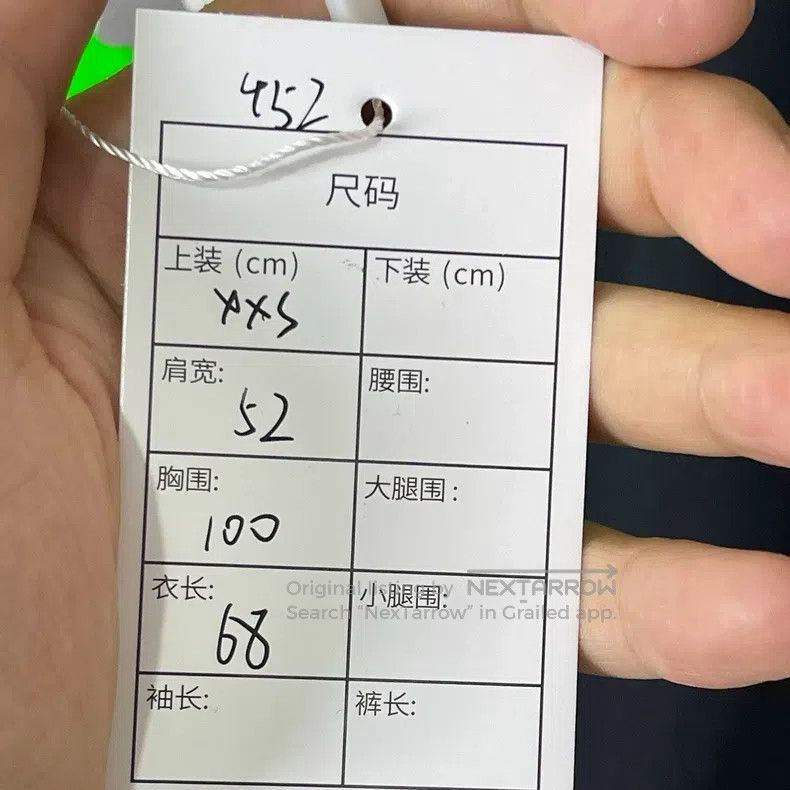 452
尺码
上装 (cm) 下装 (cm)
XXS
肩宽: 腰围:
52
胸围: 大腿围:
100
衣长: 小腿围:
68
袖长: 裤长:
Original listing by NEXTARROW
Search "NexTarrow" in Grailed app.